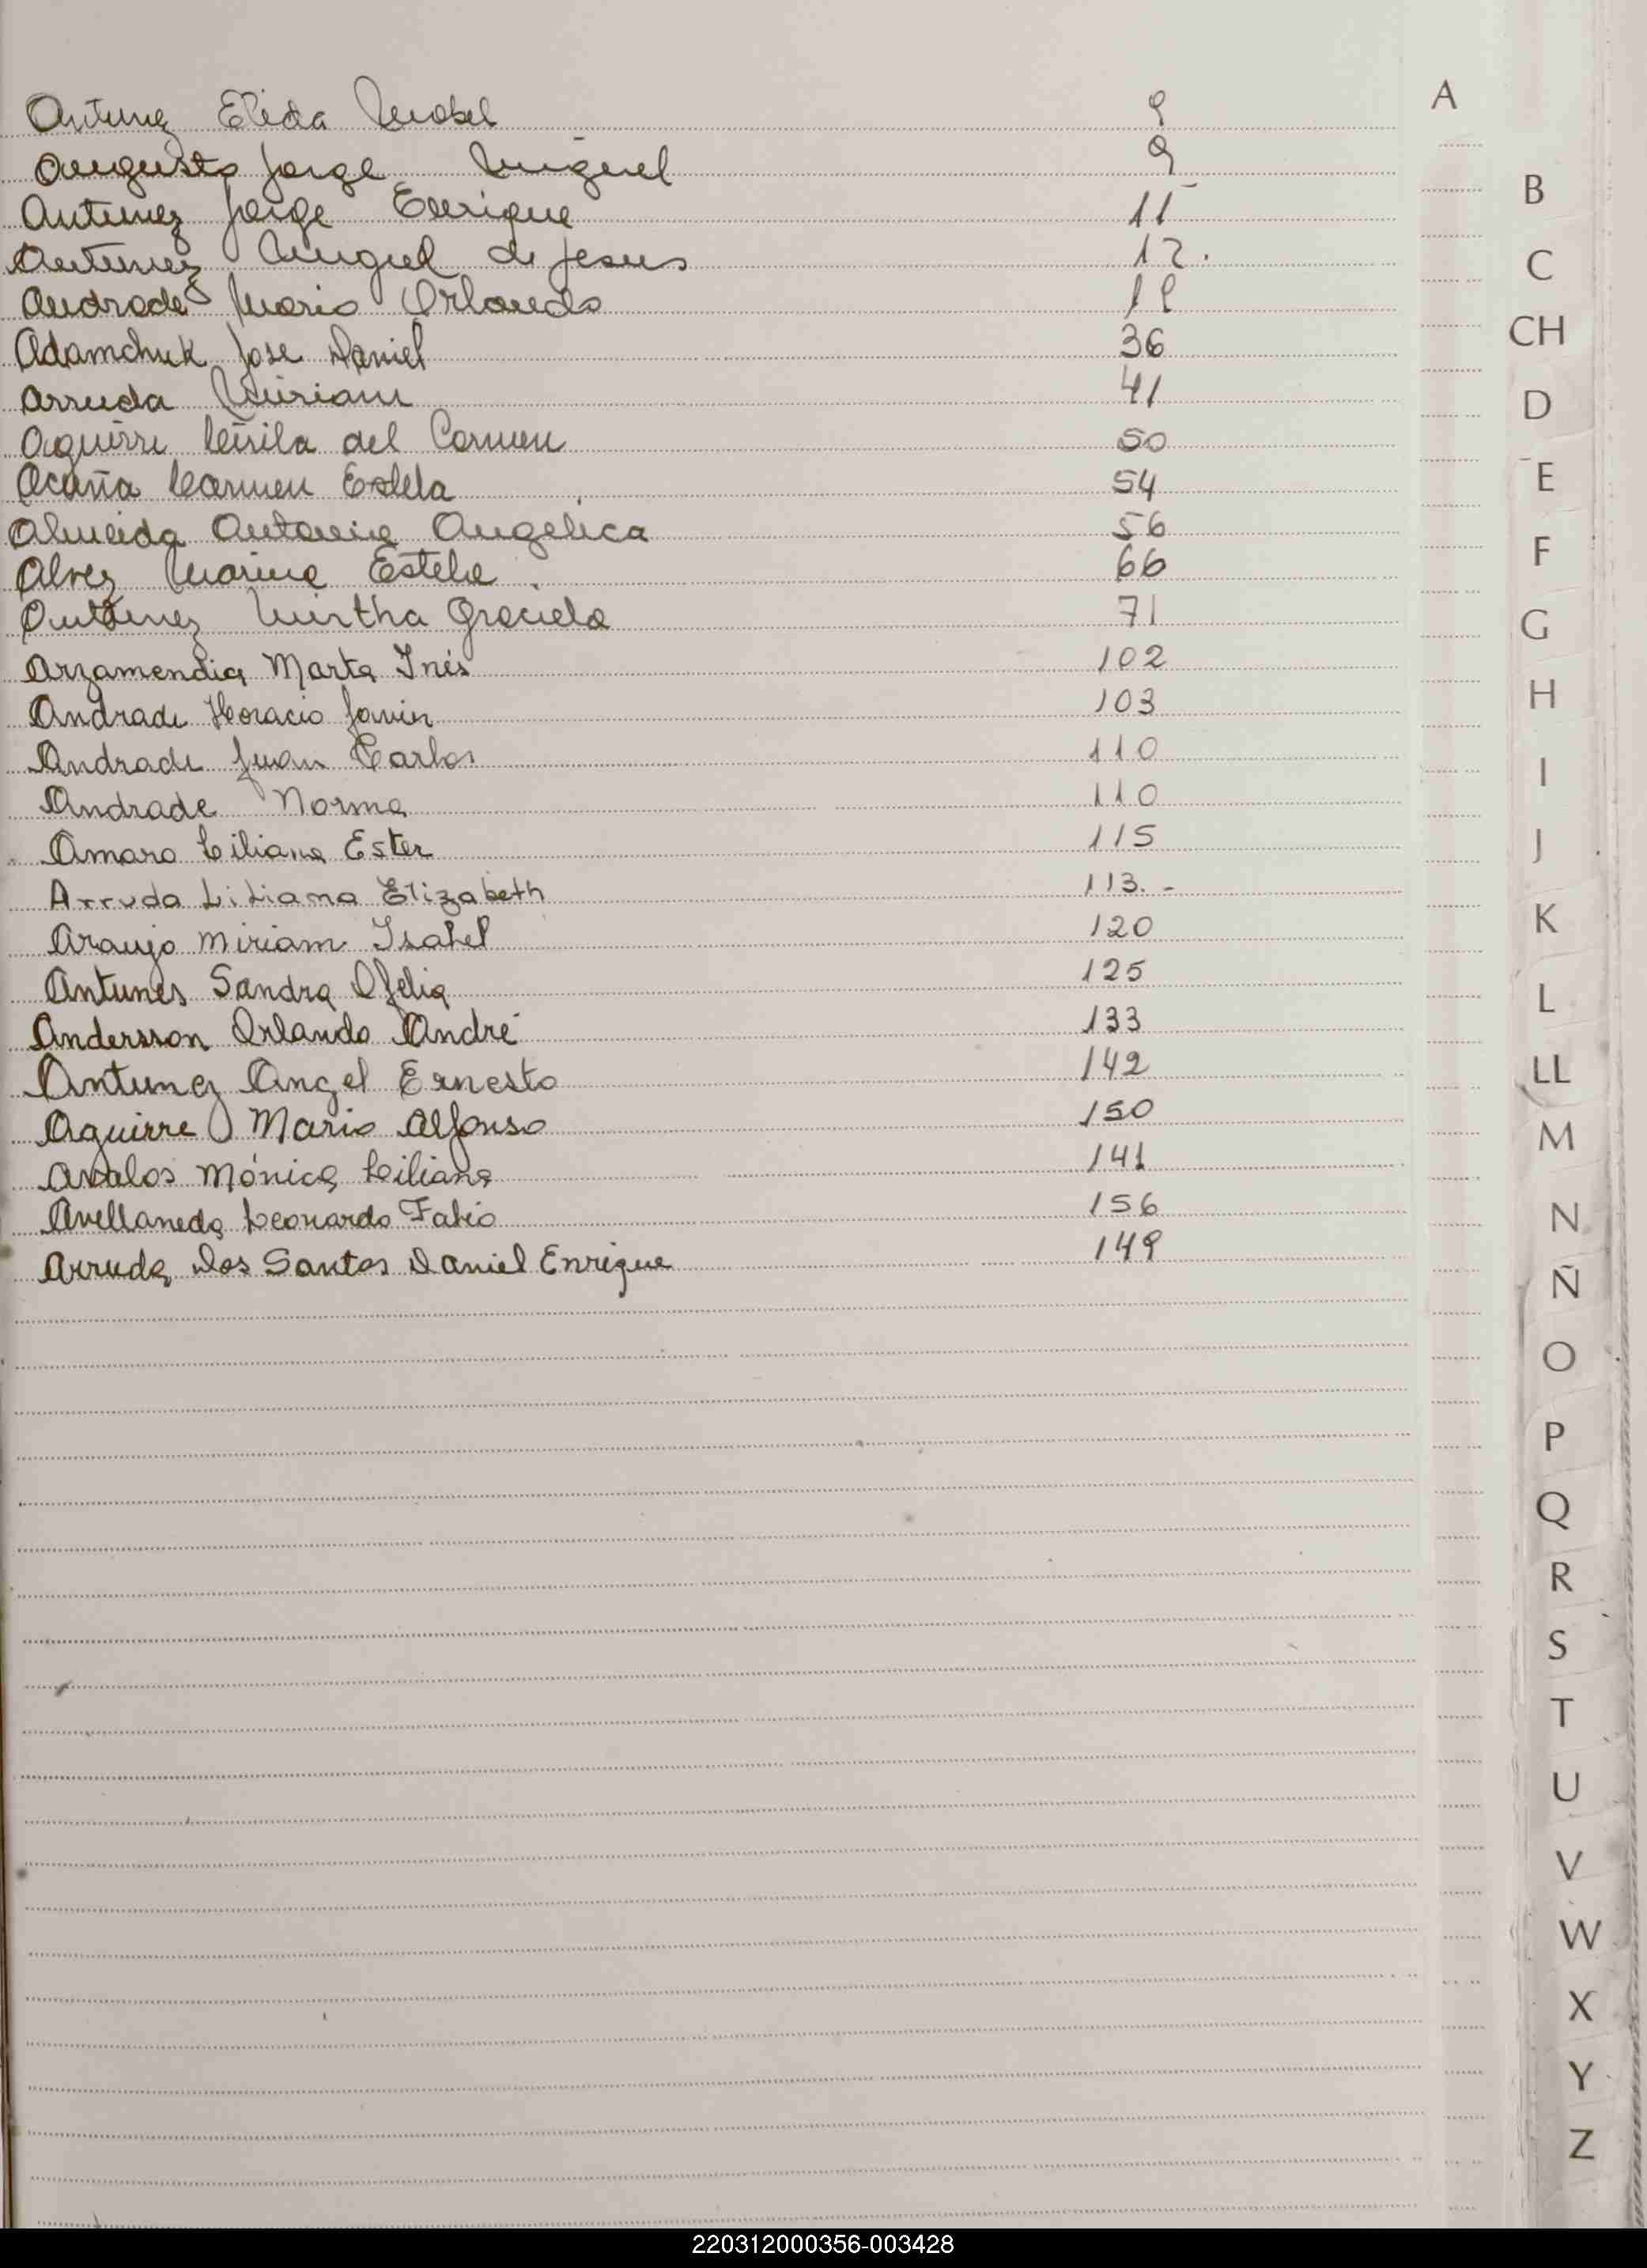 Antunez Elida Mabel 8
Augusto Jorge Miguel 9
Antunez Jorge Enrique 11
Antunez Miguel de Jesus 12.
Andrade Mario Orlando 18
Adamchuk Jose Daniel 36
Arruda Miriam 41
Aguirre Cirila del Carmen 50
Acuña Carmen Estela 54
Almeida Antonia Angelica 56
Alvez Marina Estela 66
Antunez Mirtha Graciela 71
Arzamendia Marta Inés 102
Andrade Horacio Javier 103
Andrade Juan Carlos 110
Andrade Norma 110
Amaro Liliana Ester 115
Arruda Liliana Elizabeth 113.-
Araujo Miriam Isabel 120
Antunes Sandra Ofelia 125
Andersson Orlando André 133
Antunez Angel Ernesto 142
Aguirre Mario Alfonso 150
Avalos Mónica Liliana 141
Avellaneda Leonardo Fabio 156
Arruda Dos Santos Daniel Enrique 149
A
B
C
CH
D
E
F
G
H
I
J
K
L
LL
M
N
Ñ
O
P
Q
R
S
T
U
V
W
X
Y
Z
220312000356-003428